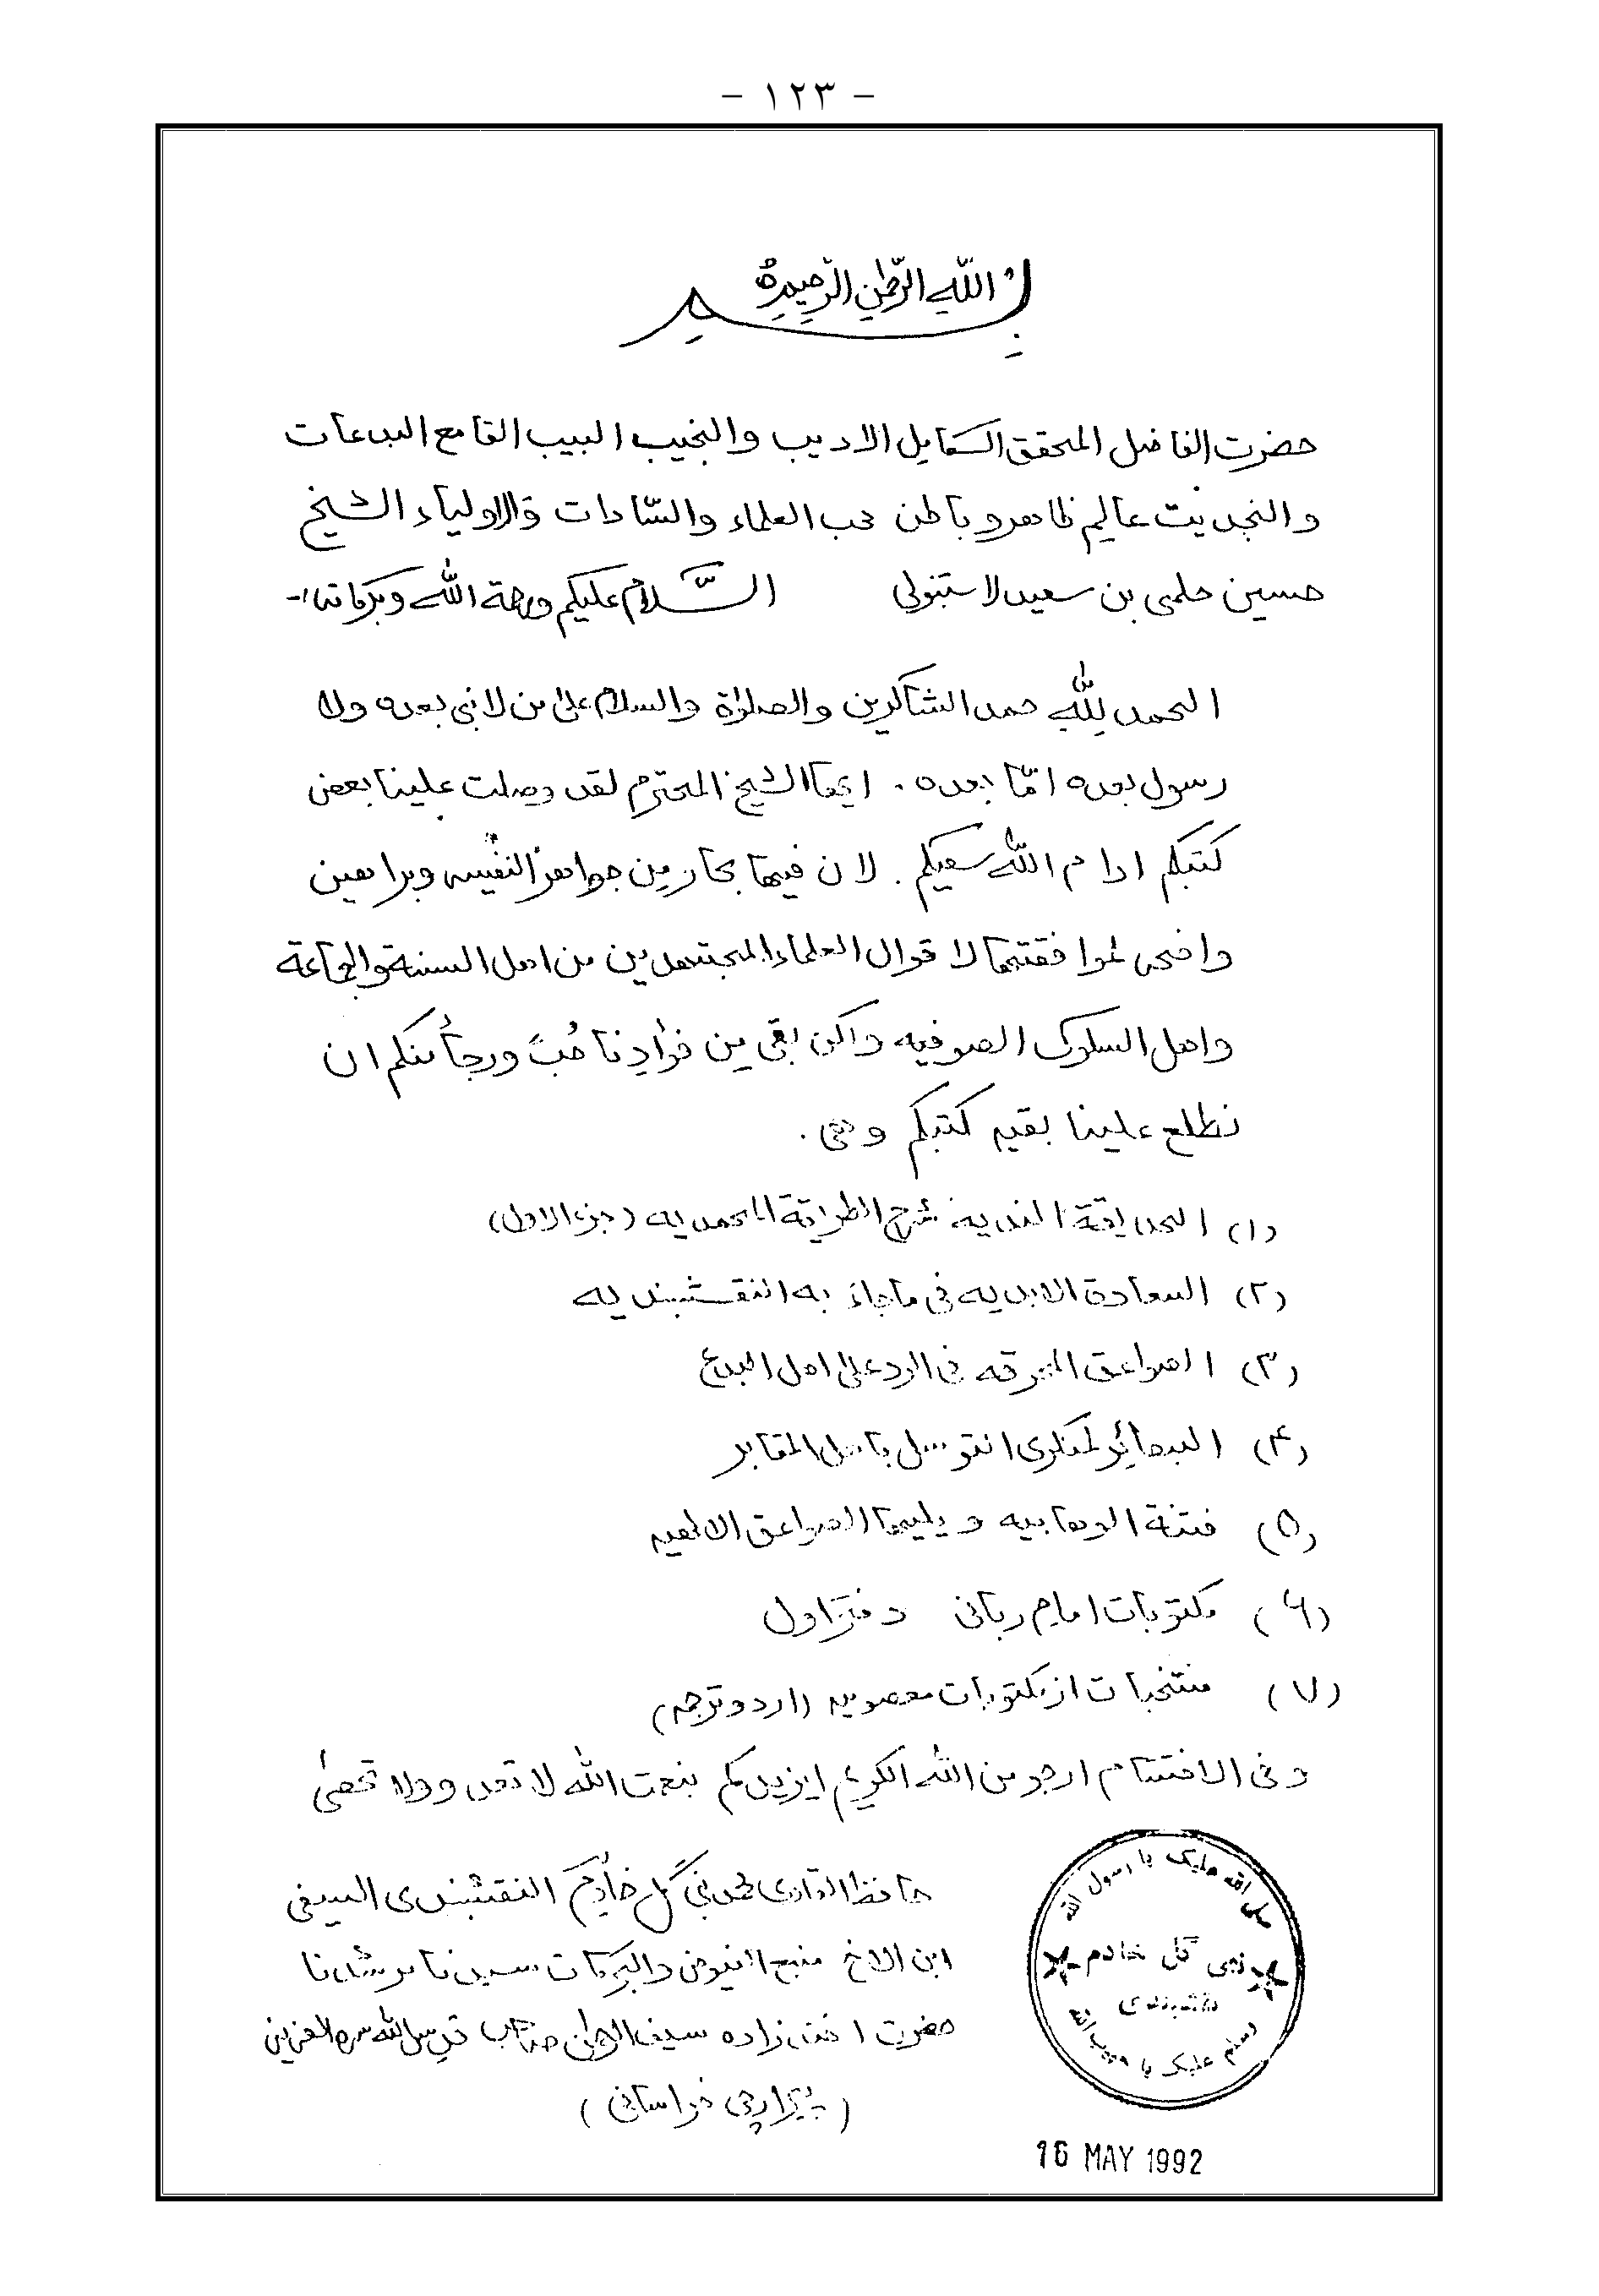 - ١٢٣ -
بسم الله الرحمن الرحيم
حضرت الفاضل المحقق الكامل الاديب والنجيب البيب القامع البدعات
والنجديت عالم ظاهر و باطن محب العلماء والسّادات والاولياء الشيخ
حسين حلمى بن سعيد لاستنبولى السَّلام عليكم ورحمة الله وبركاته:-
الحمد لله حمد الشاكرين والصلوٰة والسلام علىٰ من لا نبى بعده ولا
رسول بعده امّا بعده . ايها الشيخ المحترم لقد وصلت علينا بعض
كتبكم ادام الله سعيكم . لان فيها بحار من جواهر النفيسه وبراهين
واضحه لموافقتها لاقوال العلماء المجتهدين من اهل السنة والجماعة
واهل السلوك الصوفيه ولكن بقى من فوادنا حُبّ ورجأ منكم ان
نطلع علينا بقيه كتبكم وهى .
(١) الحديقة النديه شرح الطريقة المحمديه (جزء الاول)
(٢) السعادة الابديه فى ماجاء به النقشبنديه
(٣) الصواعق المحرقه فى الرد علىٰ اهل البدع
(۴) البصائر لمنكرى التوسل باهل المقابر
(۵) فتنة الوهابيه ويليها الصواعق الالهيه
(۶) مكتوبات امام ربانى دفتر اول
(٧) منتخبات از مكتوبات معصوميه (اردو ترجمه)
وفى الاختتام ارجو من الله الكريم ايزيدكم بنعمت الله لا تعد و ولا تحصىٰ
حافظ القارى محمد نبى گل خادم النقشبندى السيفى
ابن الاخ منبع الفيوض والبركات سيدنا مرشدنا
حضرت اخندزاده سيف الرحمٰن صاحب قدس الله سره العزيز
(پيرارچى خراسانى)
صلى الله عليك يا رسول الله
نبى گل خادم
نقشبندى
وسلم عليك يا حبيب الله
16 MAY 1992